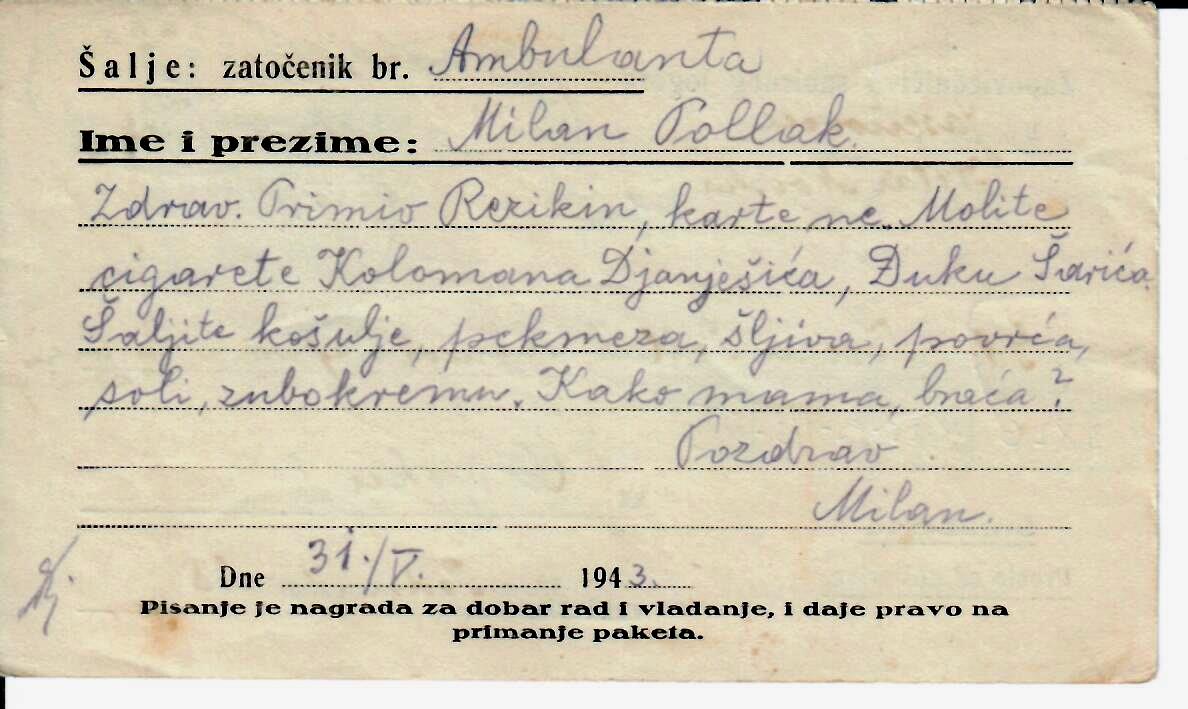 Šalje: zatočenik br. Ambulanta
Ime i prezime: Milan Pollak.
Zdrav. Primio Rezikin, karte ne. Molite
cigarete Kolomana Djanješića, Đuku Šarića.
Šaljite košulje, pekmeza, šljiva, povrća,
soli, zubokremu. Kako mama, braća?
Pozdrav
Milan.
Dne 31./V. 1943.
Pisanje je nagrada za dobar rad i vladanje, i daje pravo na
primanje paketa.